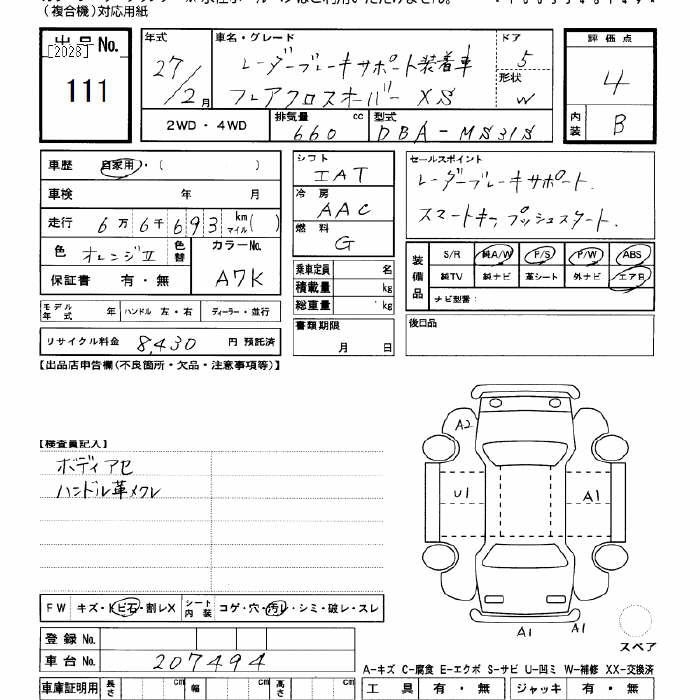 (複合機)対応用紙
出品No.
[2028]
111
年式 27/2月
車名・グレード
レーダーブレーキサポート装着車
フレアクロスオーバー XS
ドア 5
形状 W
評価点 4
内装 B
2WD・4WD
排気量 660 cc
型式 DBA-MS31S
車歴 自家用・( )
車検 年 月
走行 6万6千693 km マイル( )
色 オレンジII 色替
カラーNo. A7K
保証書 有・無
シフト IAT
冷房 AAC
燃料 G
乗車定員 名
積載量 kg
総重量 kg
書類期限
月 日
セールスポイント
レーダーブレーキサポート.
スマートキー, プッシュスタート.
装備品
S/R 純A/W P/S P/W ABS
純TV 純ナビ 革シート 外ナビ エアB
ナビ型番:
後日品
モデル年式 年 ハンドル 左・右 ディーラー・並行
リサイクル料金 8,430 円 預託済
【出品店申告欄(不良箇所・欠品・注意事項等)】
【検査員記入】
ボディアセ
ハンドル革メクレ
A2
U1
A1
A1
A1
FW キズ・トビ石・割レX
シート内装 コゲ・穴・汚レ・シミ・破レ・スレ
登録No.
車台No. 207494
スペア
A-キズ C-腐食 E-エクボ S-サビ U-凹ミ W-補修 XX-交換済
車庫証明用 長さ cm 幅 cm 高さ cm
工具 有・無 ジャッキ 有・無